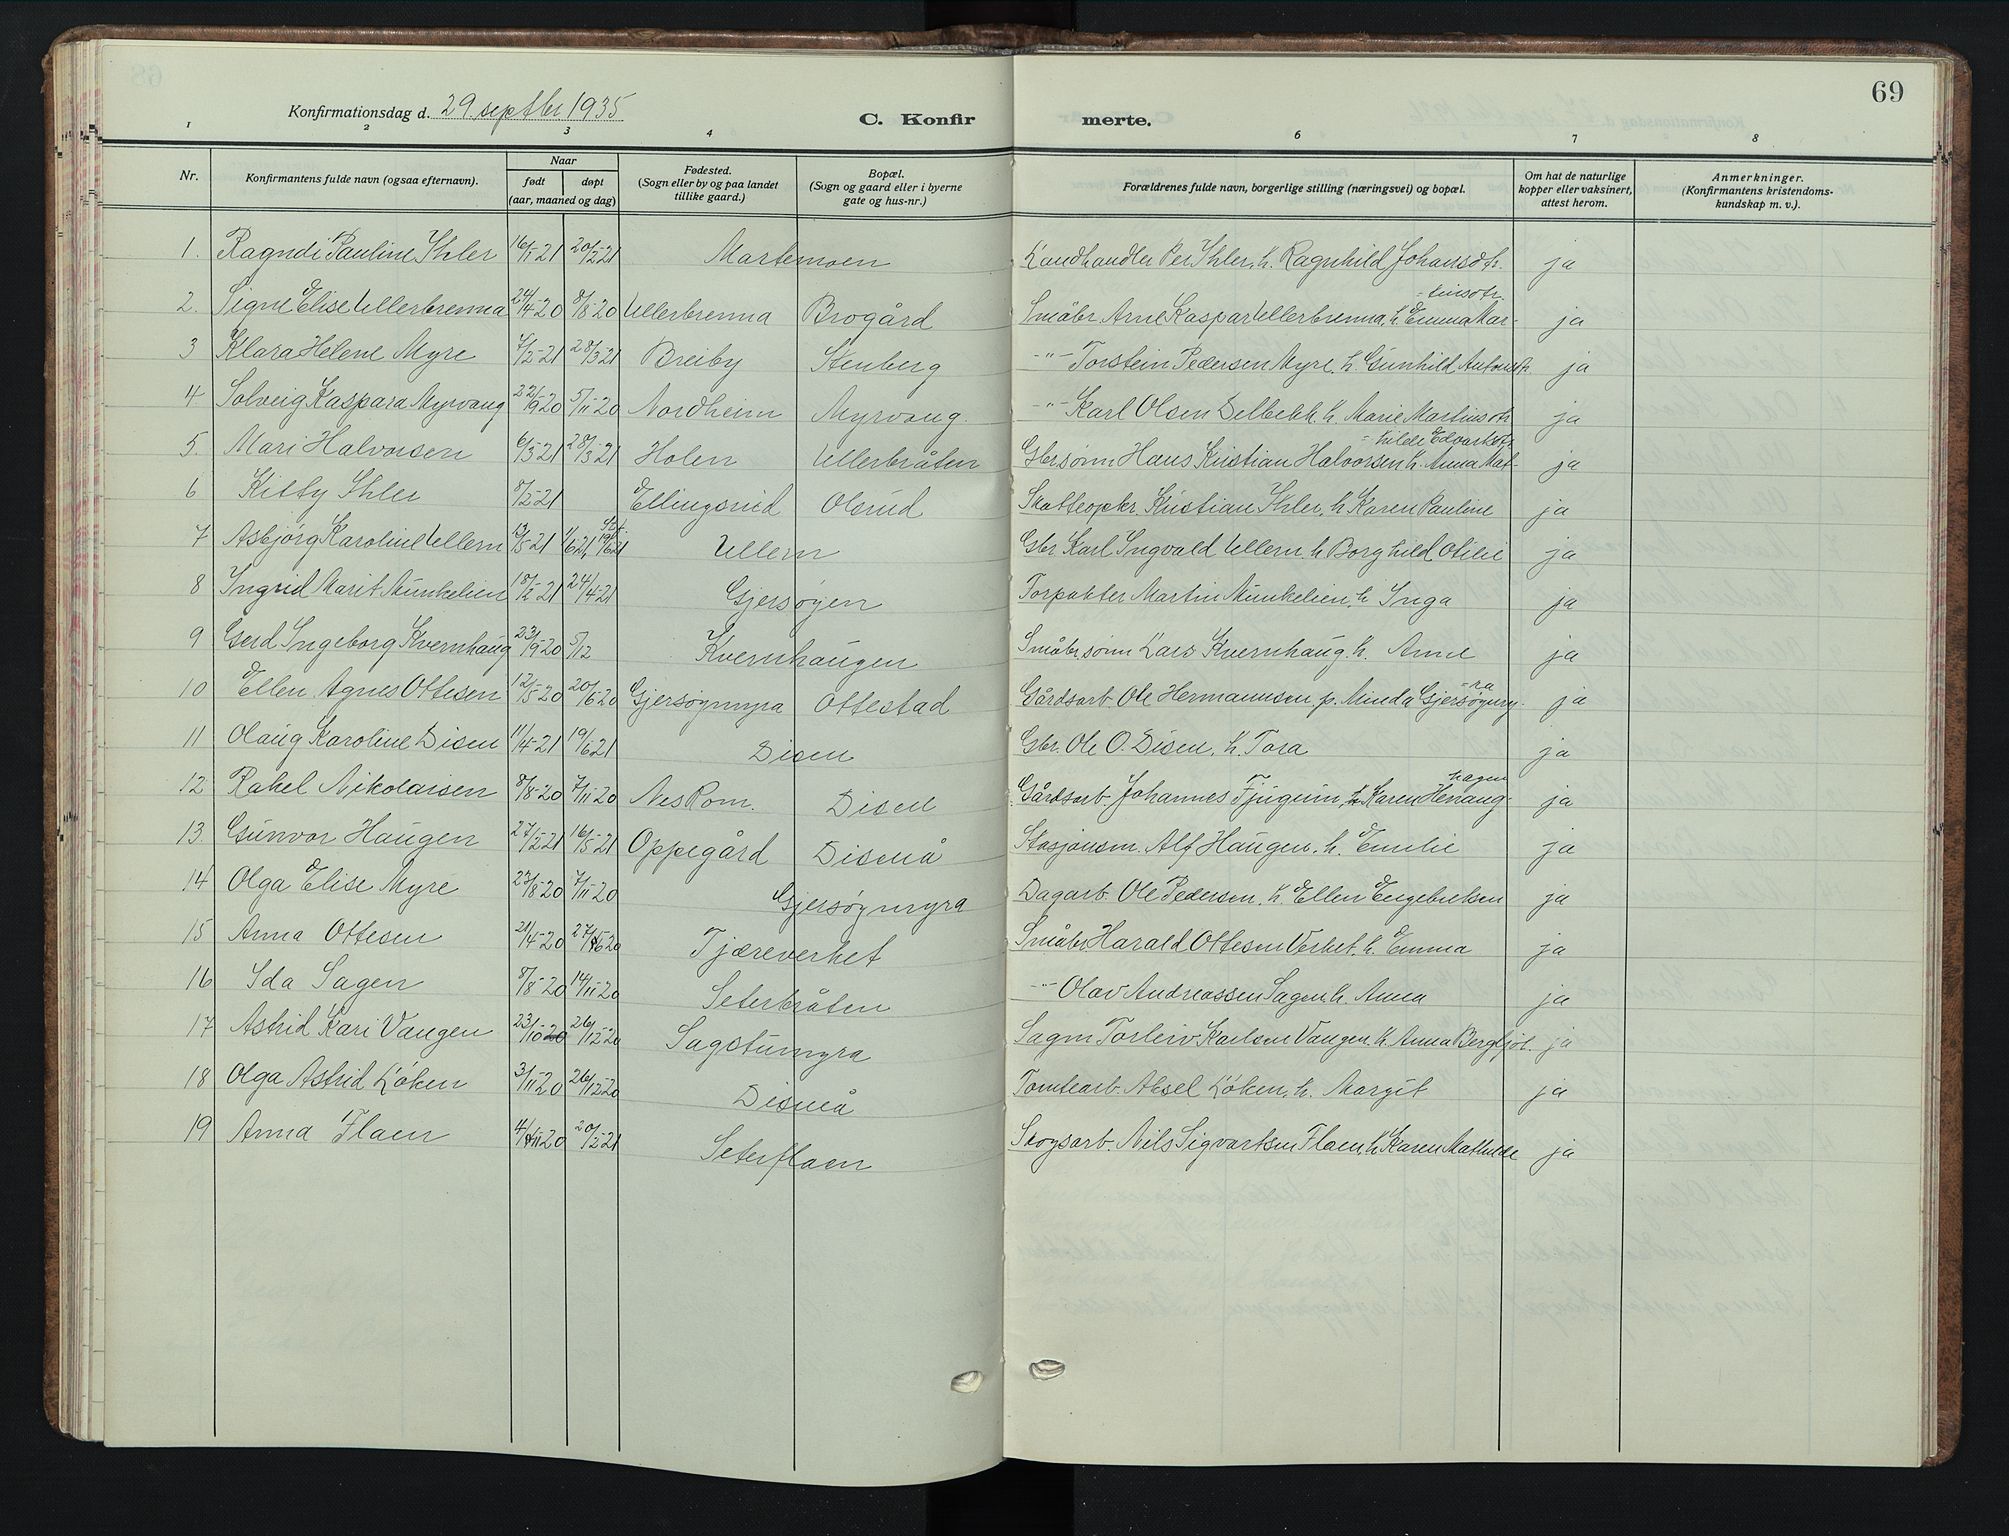 69
Konfirmationsdag d. 29 septbr 1935
C. Konfirmerte.
1 2 3 4 6 7 8
Nr. Konfirmantens fulde navn (ogsaa efternavn). Naar født døpt (aar, maaned og dag) Fødested. (Sogn eller by og paa landet tillike gaard.) Bopæl. (Sogn og gaard eller i byerne gate og hus-nr.) Forældrenes fulde navn, borgerlige stilling (næringsvei) og bopæl. Om hat de naturlige kopper eller vaksinert, attest herom. Anmerkninger. (Konfirmantens kristendomskundskap m. v.).
1. Ragndi Pauline Ihler 16/1-21 20/2 21 Martemoen Landhandler Per Ihler, h. Ragnhild Johansdtr. ja
2. Signe Elise Ullerbrenna 24/4-20 8/8-20 Ullerbrenna Brogård Småbr. Arne Kaspar Ullerbrenna, h. Emma Mar-tinsdtr. ja
3 Klara Helene Myre 7/2-21 28/3 21 Breiby Stenberg -"- Torstein Pedersen Myre. h. Gunhild Antonsdtr. ja
4 Solveig Kaspara Myrvang 22/9 20 5/11-20 Nordheim Myrvang. -"- Karl Olsen Delbekk h. Marie Martinsdtr ja
5. Mari Halvorsen 6/3 21 28/3 21 Holen Ullerbråten Gbrsønn Hans Kristian Halvorsen h. Anna Mat-hilde Edvardsdtr ja
6 Kitty Ihler 8/2-21 Ellingsrud Olsrud Skatteopkr. Kristian Ihler, h Karen Pauline ja
7 Asbjørg Karoline Ullern 13/5-21 19/6 21 Ullern Gbr. Karl Ingvald Ullern. h Borghild Otilie ja
8 Ingrid Marit Munkelien 18/2 21 24/4-21 Gjersøyen Forpakter Martin Munkelien, h Inga ja
9 Gerd Ingeborg Kvernhaug 23/9 20 5/12 Kvernhaugen Småbr.sønn Lars Kvernhaug. h. Anne ja
10 Ellen Agnes Ottesen 12/5-20 20/6 20 Gjersøymyra Ottestad Gårdsarb. Ole Hermannsen p. Minda Gjersøymy-ra ja
11 Olaug Karoline Disen 11/4-21 19/6 21 Disen Gbr. Ole O. Disen. h. Tora ja
12 Rahel Nikolaisen 8/8-20 7/11-20 Nes Rom. Disen Gårdsarb. Johannes Fjugum, h. Karen Henaug-hagen ja
13. Gunvor Haugen 27/2 21 16/5-21 Oppegård Disenå Stasjonsm. Alf Haugen. h. Emilie ja
14 Olga Elise Myre 23/8-20 7/11-20 Gjersøymyra Dagarb. Ole Pedersen. h. Ellen Engebretsen ja
15 Anna Ottesen 21/4-20 27/6 20 Tjæreverket Småbr Harald Ottesen Verket. h. Emma ja
16 Ida Sagen 8/8-20 14/11-20 Seterbråten -"- Olav Andreassen Sagen. h. Anna ja
17 Astrid Kari Vangen 23/10 20 26/12-20 Sagstumyra Sagm Torleiv Karlsen Vangen. h. Anna Bergljot. ja
18 Olga Astrid Løken 3/11-20 26/12-20 Disenå Tomtearb. Aksel Løken. h. Margit ja
19 Anna Flaen 4/11 20 20/2-21 Seterflaen Skogsarb. Nils Sigvartsen Flaen, h Karen Mathilde ja